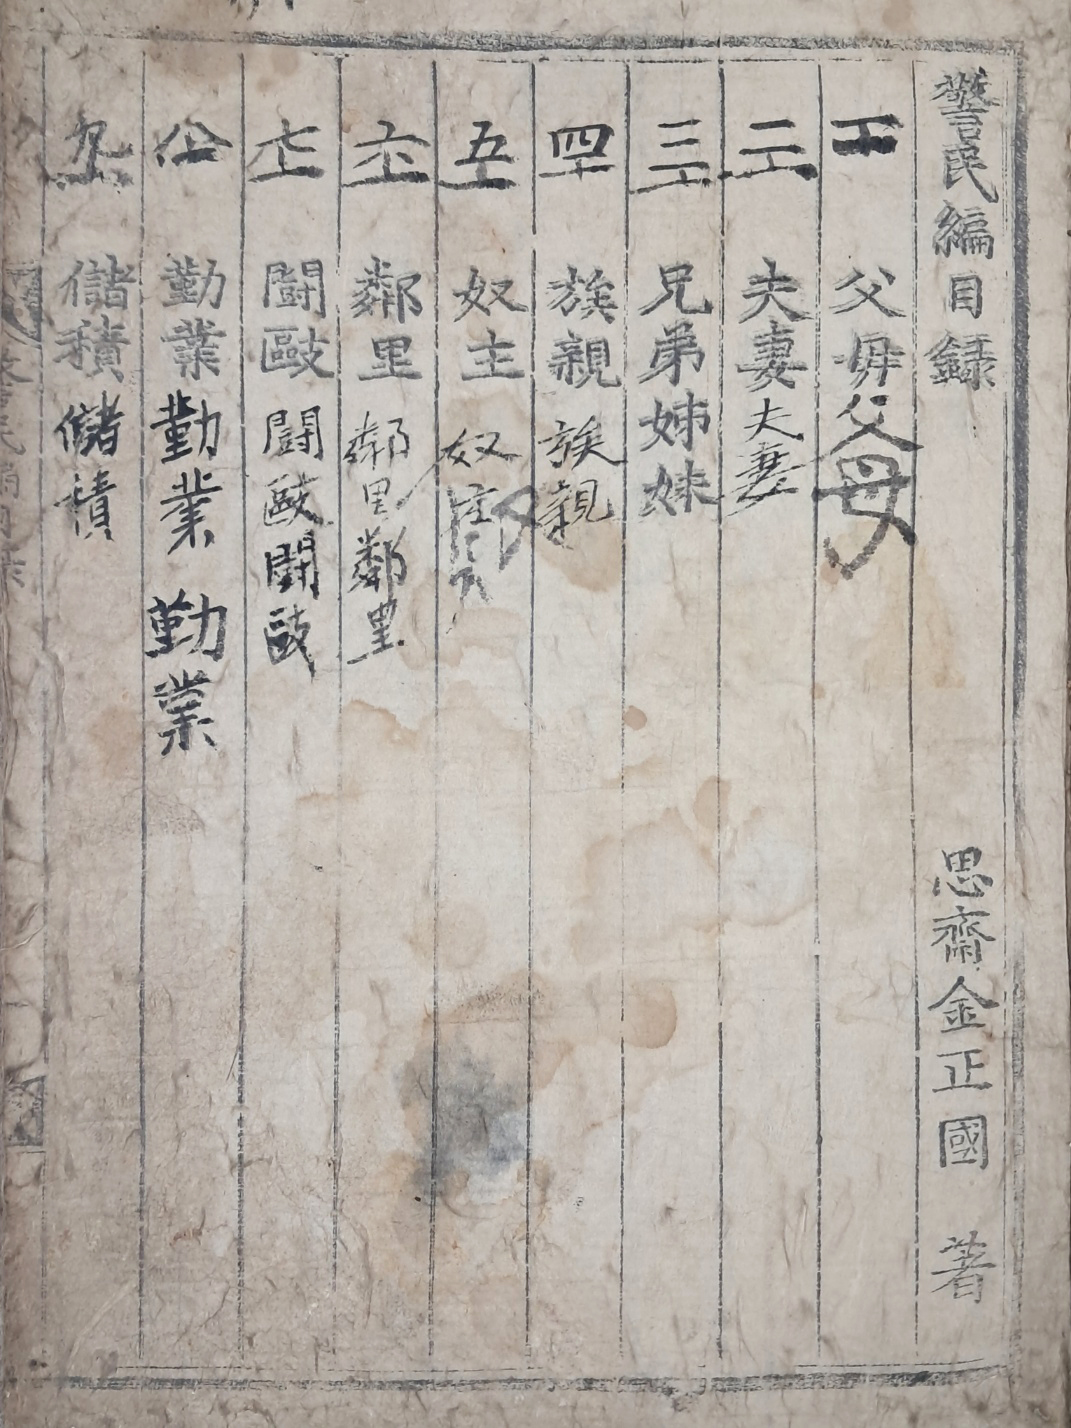 警民編目録 思齋金正國 著
一 父母 父母
二 夫妻 夫妻
三 兄弟姊妹
四 族親 族親
五 奴主 奴
六 鄰里 鄰里 鄰里
七 鬪毆 鬪毆 鬪毆
八 勤業 勤業 勤業
九 儲積 儲積